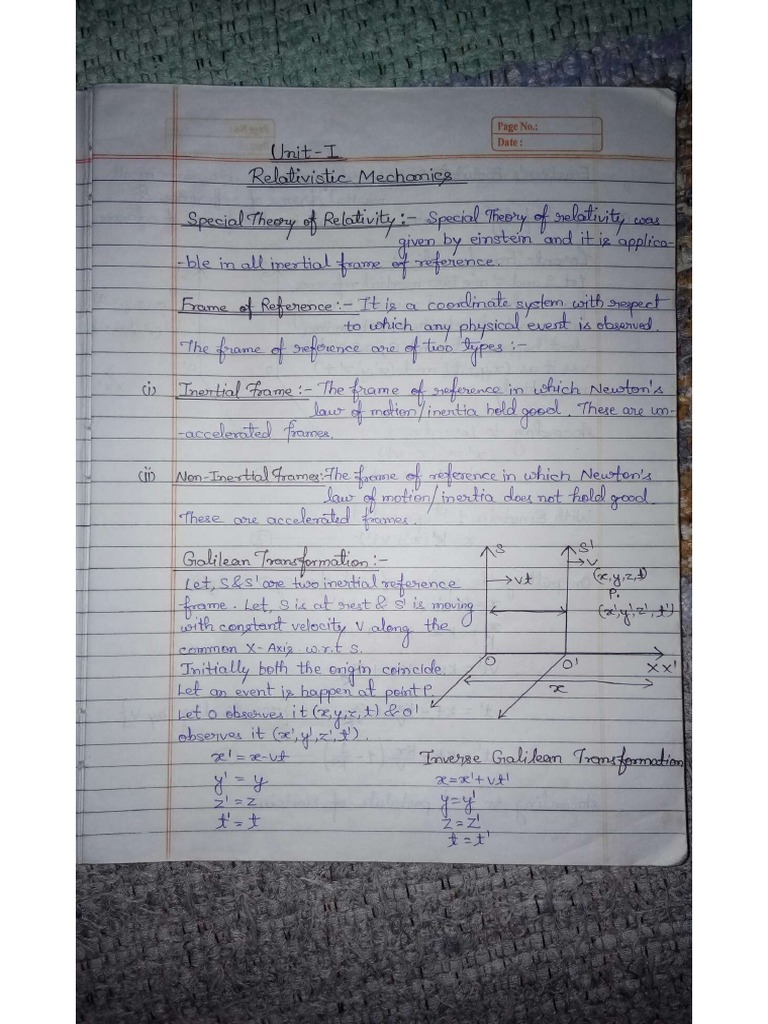 Page No.:
Date :
Unit-I
Relativistic Mechanics
Special Theory of Relativity :- Special Theory of relativity was
given by einstein and it is applica-
-ble in all inertial frame of reference.
Frame of Reference :- It is a coordinate system with respect
to which any physical event is observed.
The frame of reference are of two types :-
(i) Inertial Frame :- The frame of reference in which Newton's
law of motion/inertia hold good. These are un-
-accelerated frames.
(ii) Non-Inertial Frames:- The frame of reference in which Newton's
law of motion/inertia does not hold good.
These are accelerated frames.
Galilean Transformation :-
Let, S & S' are two inertial reference
frame. Let, S is at rest & S' is moving
with constant velocity V along the
common X-Axis w.r.t S.
Initially both the origin coincide.
Let an event is happen at point P.
Let O observes it (x,y,z,t) & O'
observes it (x',y',z',t').
S
S'
v
vt
(x,y,z,t)
P.
(x',y',z',t')
O
O'
X X'
x
x' = x-vt
y' = y
z' = z
t' = t
Inverse Galilean Transformation
x = x'+vt'
y = y'
z = z'
t = t'